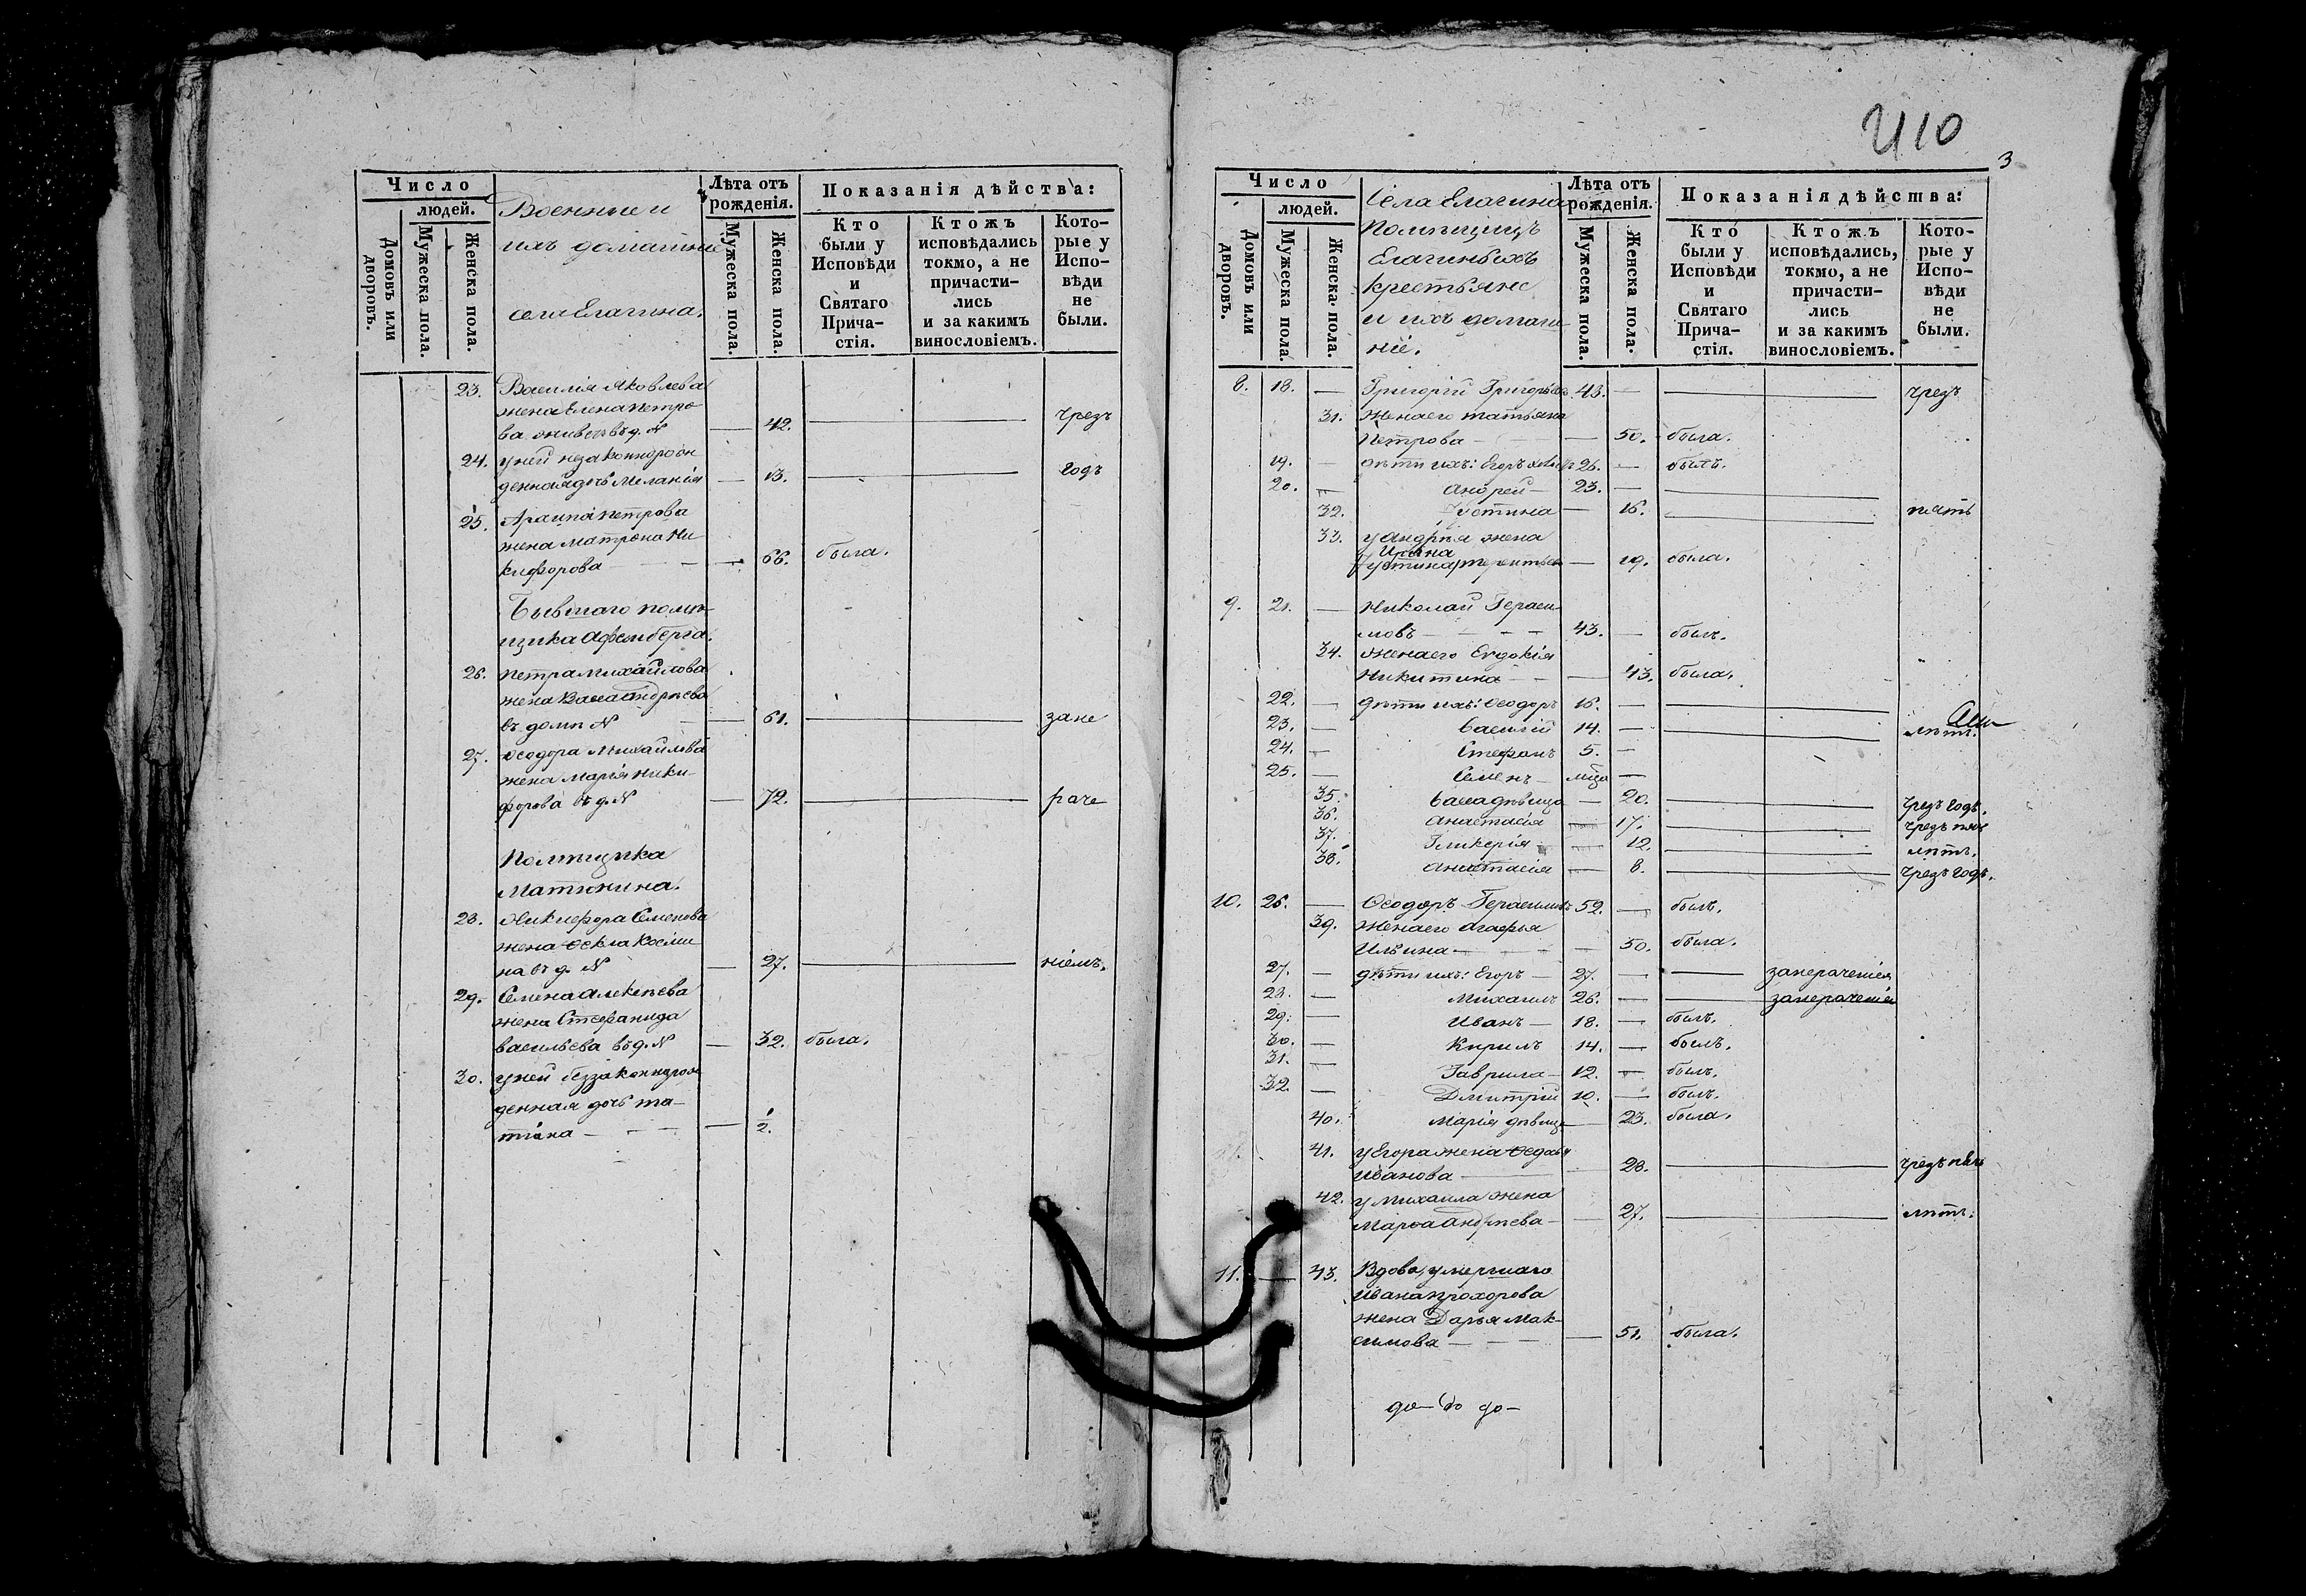 Число
людей.
Домовъ или дворовъ.
Мужеска пола.
Женска пола.
Военные и
ихъ домашніе
села Елагина.
Лѣта отъ
рожденія.
Мужеска пола.
Женска пола.
Показанія дѣйства:
Кто
были у
Исповѣди
и
Святаго
Прича-
стія.
Ктожъ
исповѣдались
токмо, а не
причасти-
лись
и за какимъ
винословіемъ.
Кото-
рые у
Испо-
вѣди
не
были.
23. Василія Яковлева
жена Елена Петро-
ва въ д. N — 42. чрезъ
24. у ней незаконнорож
денная дочь Меланія — 13. годъ
25. Петрова
жена Матрона Ни-
кифорова — 66. была.
Бывшаго помѣ-
щика
26. Петра Михайлова
жена Васса Андрѣева
въ домѣ N — 61. зане
27. Ѳеодора Михайлова
жена Марія Ники-
форова въ д. N — 72. раче
Помѣщика
Матюнина.
28. Никифора Семенова
жена Ѳекла Косми-
на въ д. N — 27. ніемъ.
29. Семена Алексѣева
жена Стефанида
Васильева въ д. N — 32. была.
30. у ней беззаконнорож
денная дочь Та-
тіана — — — 1/2.
410
3
Число
людей.
Домовъ или дворовъ.
Мужеска пола.
Женска пола.
Села Елагина
Помѣщицъ
Елагиныхъ
крестьяне
и ихъ домаш
ніе.
Лѣта отъ
рожденія.
Мужеска пола.
Женска пола.
Показанія дѣйства:
Кто
были у
Исповѣди
и
Святаго
Прича-
стія.
Ктожъ
исповѣдались,
токмо, а не
причасти-
лись
и за какимъ
винословіемъ.
Кото-
рые у
Испо-
вѣди
не
были.
8. 18. — Григорій Григорьевъ 43. — чрезъ
31. Жена его Татьяна
Петрова — — 50. была.
19. — дѣти ихъ: Егоръ 26. — былъ.
20. — Андрей — 23. —
32. Устинія — 16. пять
33. у Андрѣя жена
Ирина
Устина Терентьева — 19. была.
9. 21. — Николай Гераси-
мовъ — — — 43. — былъ.
34. Жена его Евдокія
Никитина — — 43. была.
22. — дѣти ихъ: Ѳеодоръ 16. —
23. — Василій 14. — лѣтъ.
24. — Стефанъ 5. —
25. — Семенъ — мѣся —
35. Васса дѣвица — 20. чрезъ годъ.
36. Анастасія — 17. чрезъ пять
37. Гликерія — 12. лѣтъ.
38. Анастасія — 8. чрезъ годъ.
10. 26. — Ѳеодоръ Герасимовъ 52. — былъ.
39. Жена его Агафья
Ильина — — 50. была.
27. — дѣти ихъ: Егоръ — 27. — занераченіемъ
28. — Михаилъ 26. — занераченіемъ
29. — Иванъ — 18. — былъ.
30. — Кирилъ 14. — былъ.
31. — Гаврила — 12. — былъ.
32. — Дмитрій 10. — былъ.
40. Марія дѣвица — 23. была.
41. у Егора жена Ѳедосья
Иванова — 28. чрезъ пять
42. у Михаила жена
Марѳа Андрѣева — 27. лѣтъ.
11. — 43. Вдова, умершаго
Ивана Прохорова
жена Дарья Мак-
симова — — — 51. была.